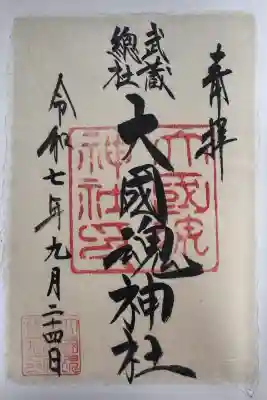 奉拝
武蔵
總社
大國魂神社
令和七年九月二十四日
大國魂
神社印